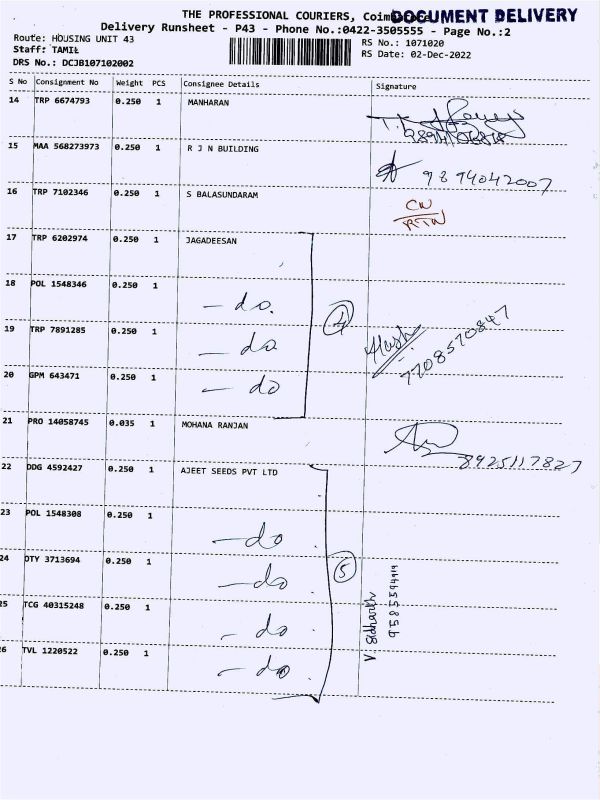 THE PROFESSIONAL COURIERS, DOCUMENT DELIVERY
Delivery Runsheet - P43 - Phone No.:0422-3505555 - Page No.:2
Route: HOUSING UNIT 43 RS No.: 1071020
Staff: TAMIL RS Date: 02-Dec-2022
DRS No.: DCJB107102002
S No Consignment No Weight PCS Consignee Details Signature
14 TRP 6674793 0.250 1 MANHARAN
15 MAA 568273973 0.250 1 R J N BUILDING 9894042007
16 TRP 7102346 0.250 1 S BALASUNDARAM CN
RTN
17 TRP 6202974 0.250 1 JAGADEESAN
18 POL 1548346 0.250 1 - do. 4
19 TRP 7891285 0.250 1 - do 7708570847
20 GPM 643471 0.250 1 - do
21 PRO 14058745 0.035 1 MOHANA RANJAN 8925117827
22 DDG 4592427 0.250 1 AJEET SEEDS PVT LTD
23 POL 1548308 0.250 1 - do
24 DTY 3713694 0.250 1 - do 5
25 TCG 40315248 0.250 1 - do V. Sidharth
26 TVL 1220522 0.250 1 - do